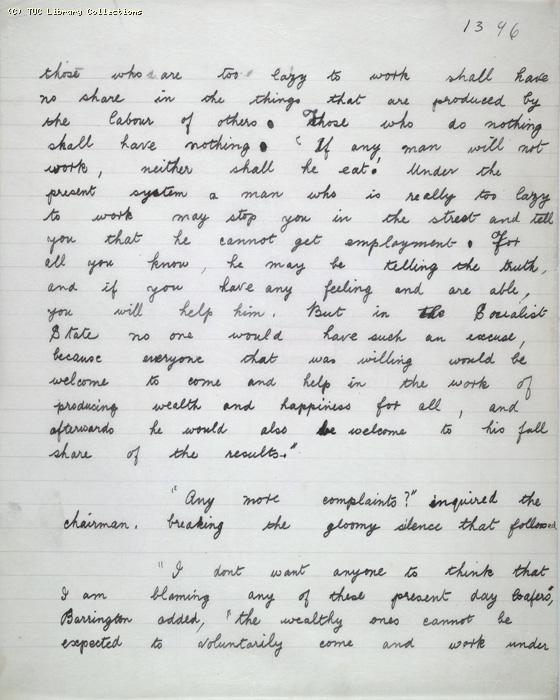 (C) TUC Library Collections
1396
those who are too lazy to work shall have
no share in the things that are produced by
the labour of others. Those who do nothing
shall have nothing. "If any man will not
work, neither shall he eat." Under the
present system a man who is really too lazy
to work may stop you in the street and tell
you that he cannot get employment. For
all you know, he may be telling the truth,
and if you have any feeling and are able,
you will help him. But in the Socialist
State no one would have such an excuse,
because everyone that was willing would be
welcome to come and help in the work of
producing wealth and happiness for all, and
afterwards he would also be welcome to his full
share of the results."
"Any more complaints?" inquired the
chairman. breaking the gloomy silence that followed
"I dont want anyone to think that
I am blaming any of these present day loafers",
Barrington added, "the wealthy ones cannot be
expected to voluntarily come and work under